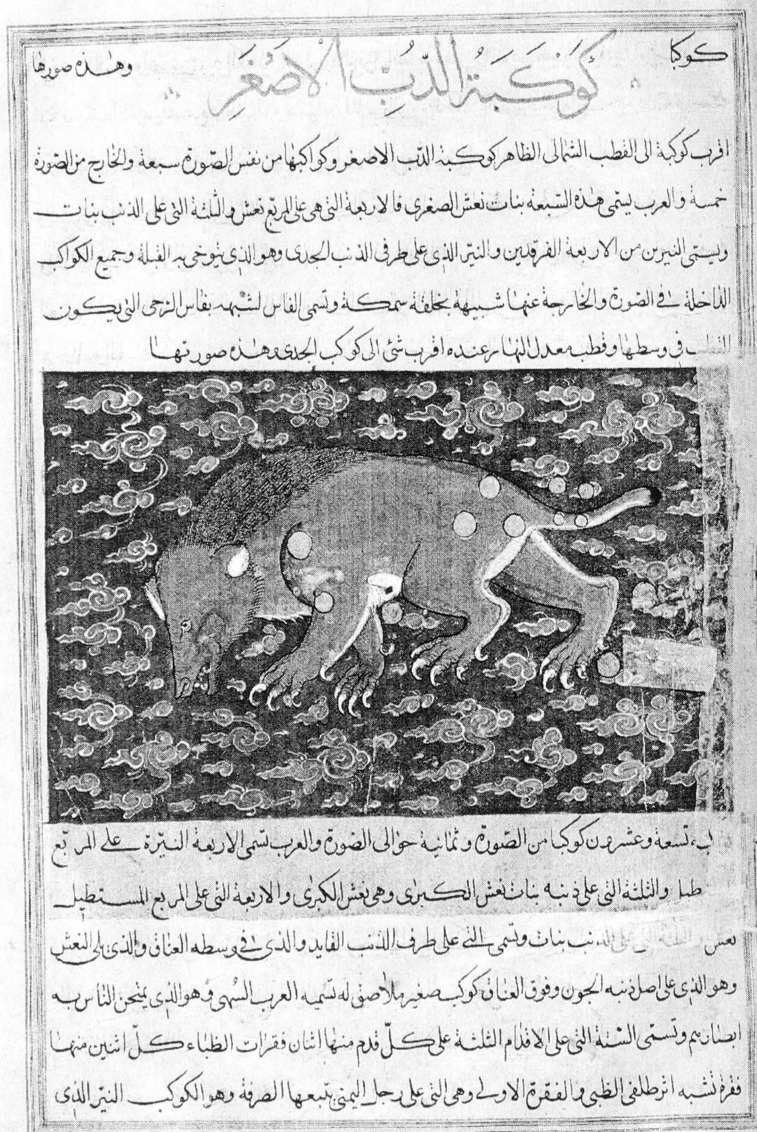 كوكبا
كَوْكَبَةُ الدُّبِّ الْاَصْغَر
وهذه صورتها
اقرب كوكبة الى القطب الشمالى الظاهر كوكبة الدب الاصغر وكواكبها من نفس الصورة سبعة والخارج من الصورة
خمسة والعرب يسمى هذه السبعة بنات نعش الصغرى فالاربعة التى هى على المربع نعش والثلثة التى على الذنب بنات
ويسمى النيرين من الاربعة الفرقدين والنير الذى على طرفى الذنب الجدى وهو الذى يتوخى به القبلة وجميع الكواكب
الداخلة فى الصورة والخارجة عنها شبيهة بخلقة سمكة وتسمى الفاس لشبهه بفاس الرحى التى يكون
القطب فى وسطها وقطب معدل النهار عنده اقرب شئ الى كوكب الجدى وهذه صورتها
تسعة وعشرون كوكبا من الصورة وثمانية حوالى الصورة والعرب تسمى الاربعة النيرة على المربع
والثلثة التى على ذنبه بنات نعش الكبرى وهى نعش الكبرى والاربعة التى على المربع المستطيل
نعش على الذنب بنات وتسمى التى على طرف الذنب القايد والذى فى وسطه العناق والذى يلى النعش
وهو الذى على اصل ذنبه الجون وفوق العناق كوكب صغير ملاصق له تسميه العرب السهى وهو الذى يمتحن الناس به
ابصارهم وتسمى الستة التى على الاقدام الثلثة على كلّ قدم منها اثنان فقرات الظباء كلّ اثنين منها
فقرة تشبه اثر ظلفى الظبى والفقرة الاولى وهى التى على رجل اليمنى يتبعها الصرفة وهو الكوكب النير الذى